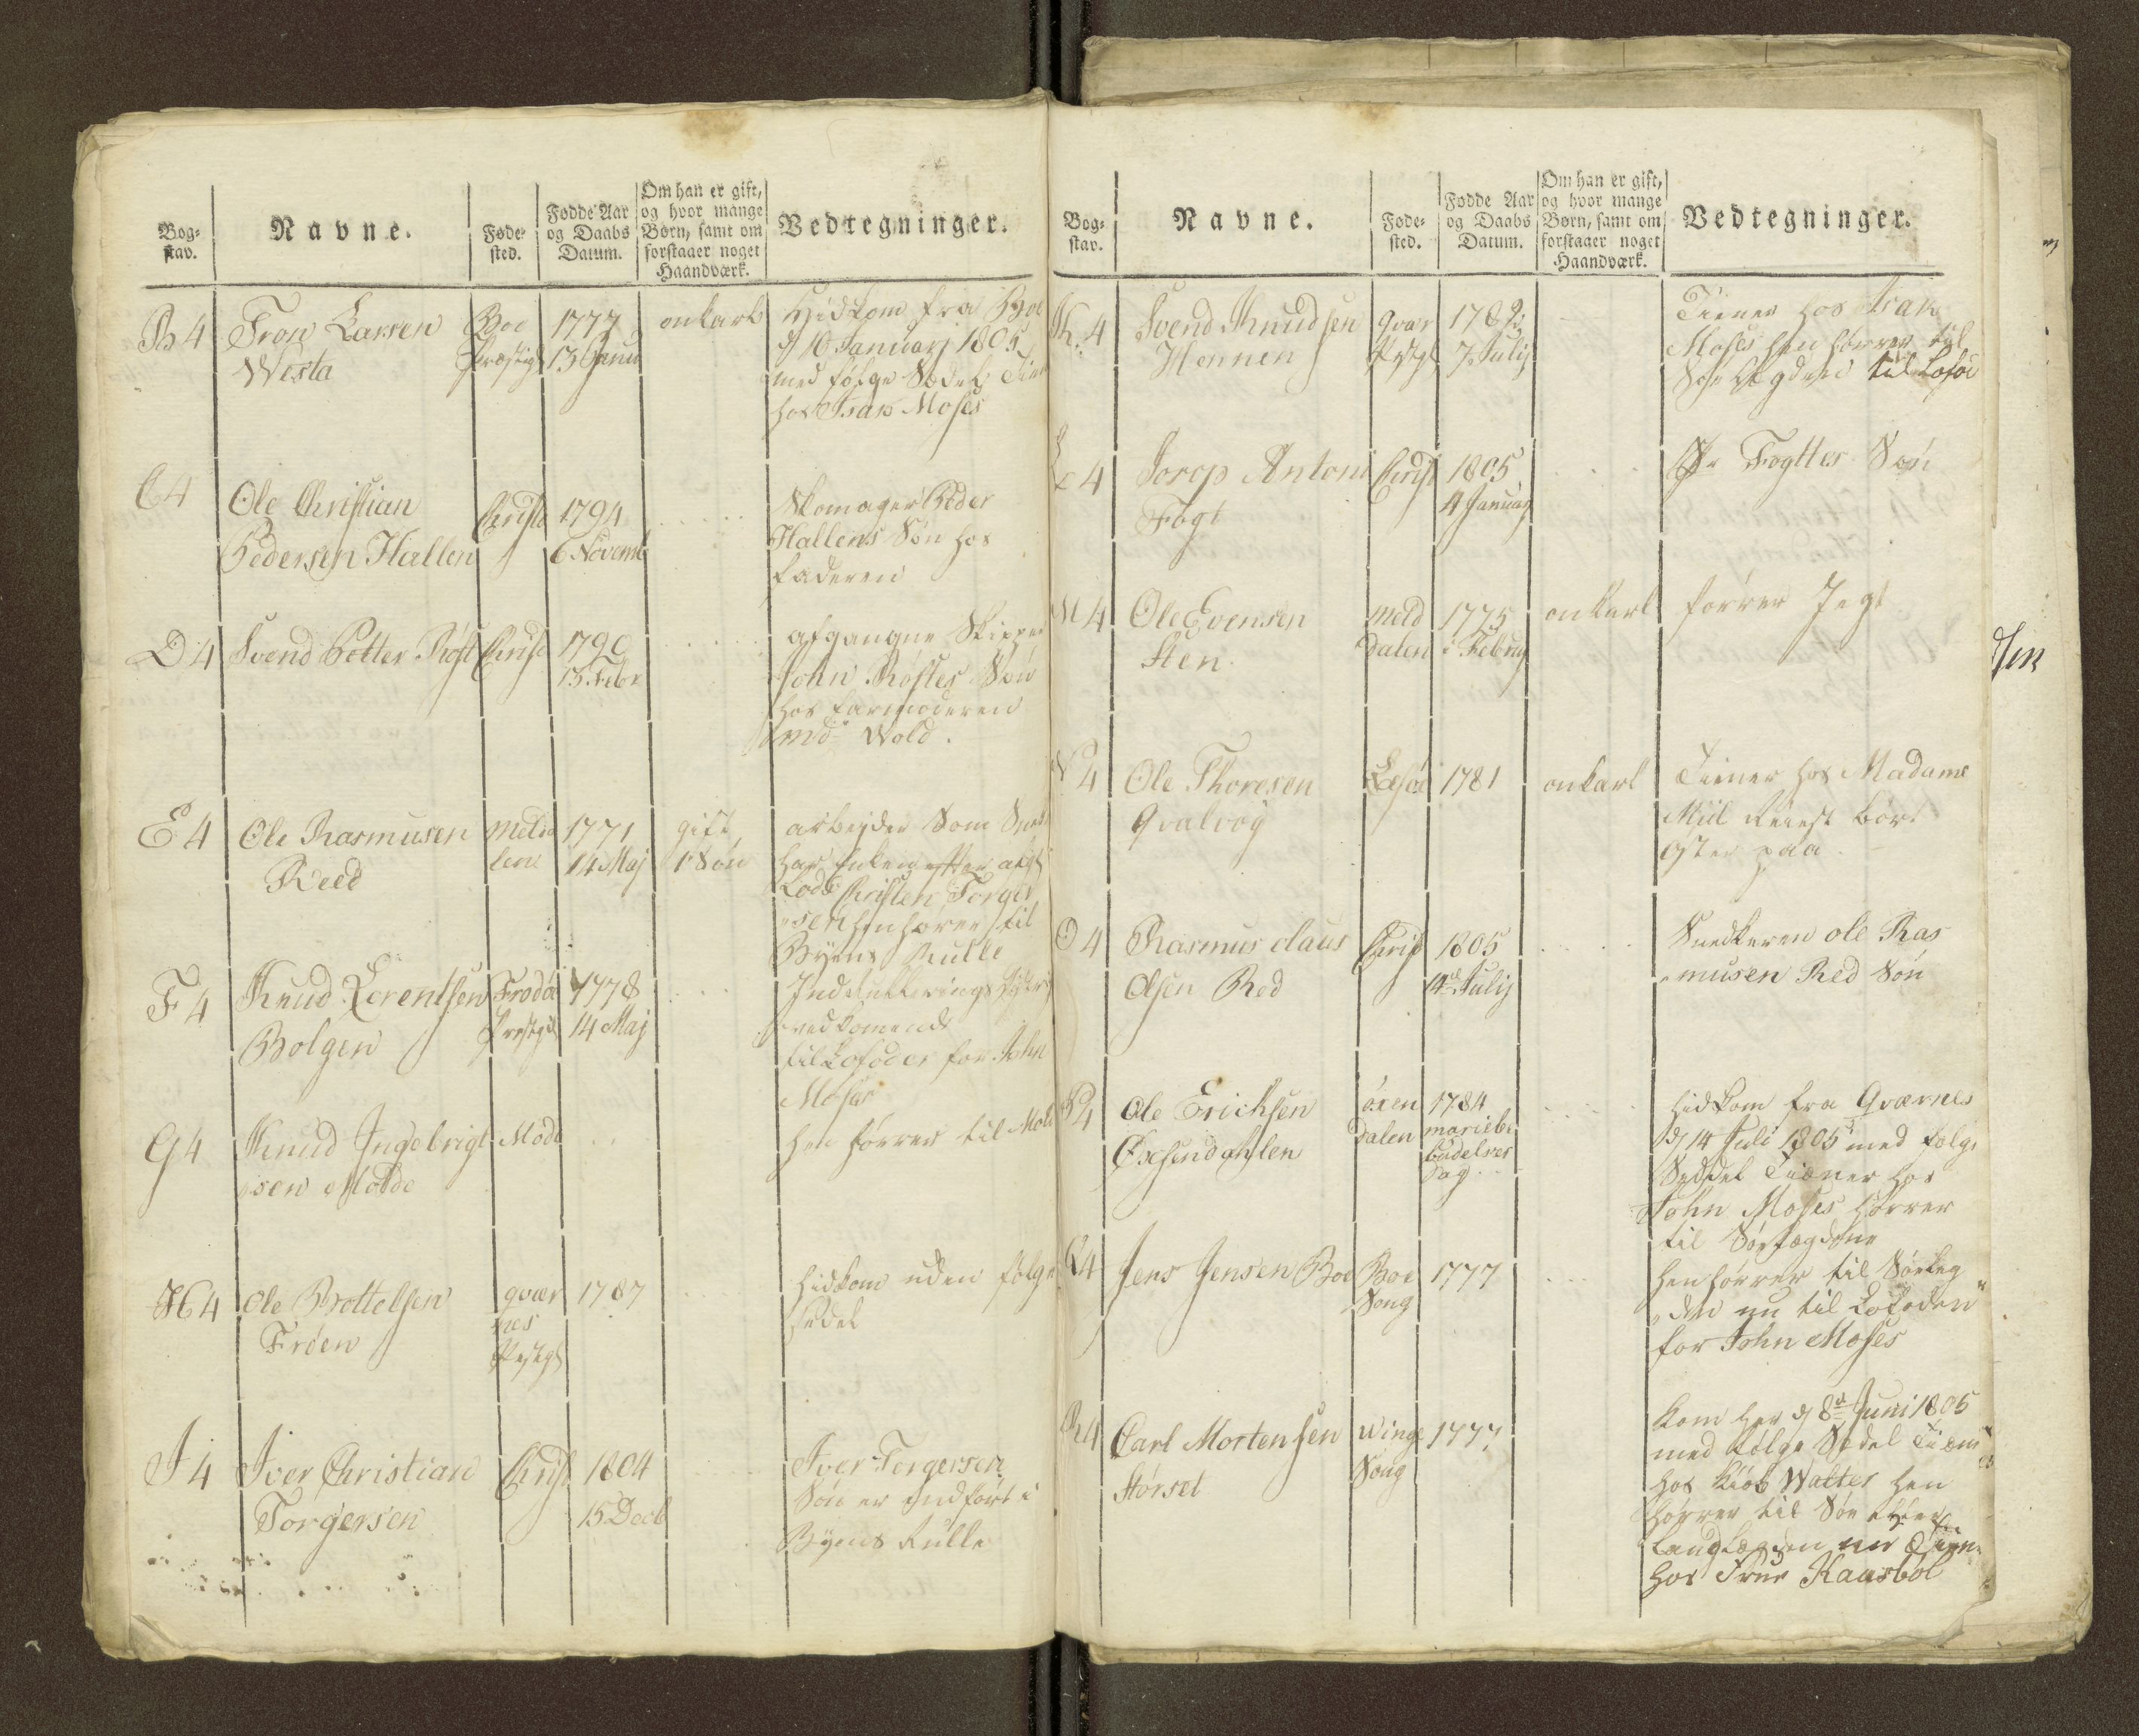 Bog-
stav.
Navne.
Føde-
sted.
Fødde Aar
og Daabs
Datum.
Om han er gift,
og hvor mange
Børn, samt om
forstaaer noget
Haandværk.
Vedtegninger.
B4
Tron Larsen
Westa
Boe
Præstig
1777
13 Janu
onkarl
Hidkom fra Boe
d 10 Januarj 1805
med følge Sedel Tien
hos Isak Moses
C4
Ole Christian
Pedersen Hallen
Christ
1794
6 Novemb
Skomager Peder
Hallens Søn hos
faderen
D4
Svend Petter Røst
Christ
1790
13 Febr
afgangne Skipper
John Røstes Søn
hos farmoderen
md Wold.
E4
Ole Rasmusen
Reed
Melda
len
1771
14 Maj
gift
1 Søn
arbejder Som Sned
har Enken efter afg
Lods Christen Torger
sen henhører til
Byens Rulle
F4
Knud Lorentsen
Bolgen
Frodøe
Prestgl
1778
14 Maj
Indrulleringe
vedkomende
til Lofoden for John
Moses
G4
Knud Ingebrigt
sen Molde
Mode
hen hørrer til Mold
H4
Ole Bottelsen
Frøen
gvær
nes
Pestgl
1787
hidkom uden følge
Sedel
I4
Iver Christian
Torgersen
Christ
1804
15 Decb
Iver Torgersens
Søn er indført i
Byens Rulle
Bog-
stav.
Navne.
Føde-
sted.
Fødde Aar
og Daabs
Datum.
Om han er gift,
og hvor mange
Børn, samt om
forstaaer noget
Haandværk.
Vedtegninger.
K4
Svend Knudsen
Hennen
Qvær
Pestgl
1782
7 Julij
Tiener hos Isak
Moses hen hørrer til
Søe Lægden til Lofod
L4
Jorop Antoni
Fogt
Christ
1805
4 Januarj
Sr Fogttes Søn
M4
Ole Evensen
Sten
Meld
dalen
1775
i Februj
onkarl
fører Jegt
N4
Ole Thoresen
Qvalvog
Edøe
1781
onkarl
Tiener hos Madame
Miil Reiest bort
Øster paa
O4
Rasmus claus
Olsen Red
Christ
1805
14 Julij
Snedkeren ole Ras
musen Red Søn
P4
Ole Erichsen
Øxsendahlen
öxen
dalen
1784
mariebe
budelses
Dag
hidkom fra Qværnes
d 14 Juli 1805 med følge
Seddel Tiener hos
John Moses hørrer
til Søelægdene
Q4
Jens Jensen Boe
Boe
Song
1777
hen hørrer til Søeleg
den nu til Lofoden
for John Moses
R4
Carl Mortensen
Størset
Winge
Song
1777
kom her d 8d Juni 1805
med følge Sedel Tiene
hos Kiøb Walter hen
hørrer til Søe
Landlægden nu Tiene
hos Frue Kaasbøl
sen